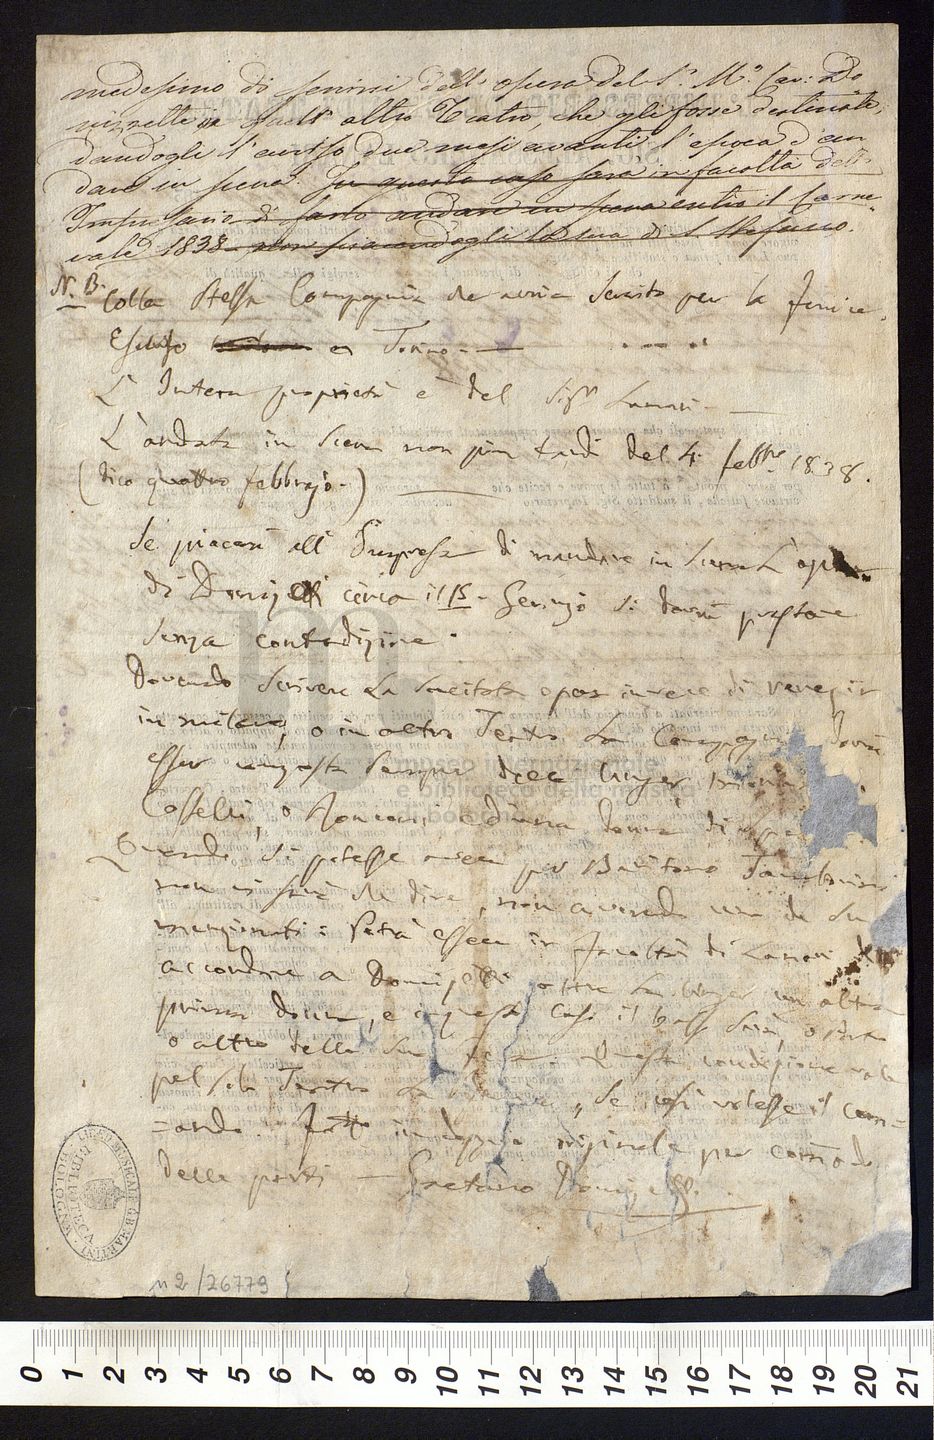 medesimo di servirsi dell'opera del S.r M.o Cav: Do-
nizzetti in quell'altro Teatro, che gli fosse destinato,
dandogli l'avviso due mesi avanti l'epoca d'an-
dare in scena. In questo caso sarà in facoltà dell'
Impresario di farlo andare in scena entro il Carne-
vale 1838 non piacendogli la sera di S. Stefano.
N. B. Colla stessa Compagnia che avria servito per la Fenice.
Escluso o Torino.
L'Intera proprietà è del Sig.r Lanari.
L'andata in scena non più tardi del 4. febb.o 1838.
(dico quattro febbrajo.)
Se piacerà all'Impresa di mandare in scena L'opera
di Donizetti circa il 15. Gennajo si dovrà prestare
senza contradizione.
Dovendo scrivere la sucitata opera invece di Venezia
in milano, o in altro Teatro La Compagnia dovrà
esser composta sempre della Unger,
Cosselli, o Ronconi, e di una donna di
Quando si potesse avere per Baritono Tamburini
non avendo uno de su
menzionati: Potrà essere in facoltà di Lanari
accordare a Donizetti oltre la Unger un altra
prima donna, e in questo caso il basso sarà
o altro della su Questa condizione vale
pel solo Teatro se così volesse il com-
=ando. Fatto in doppio originale per comodo
delle parti — Gaetano Donizetti.
LICEO MUSICALE G.B. MARTINI
BIBLIOTECA
BOLOGNA
n 2 / 26779
m
museo internazionale
e biblioteca della musica
bologna
0 1 2 3 4 5 6 7 8 9 10 11 12 13 14 15 16 17 18 19 20 21